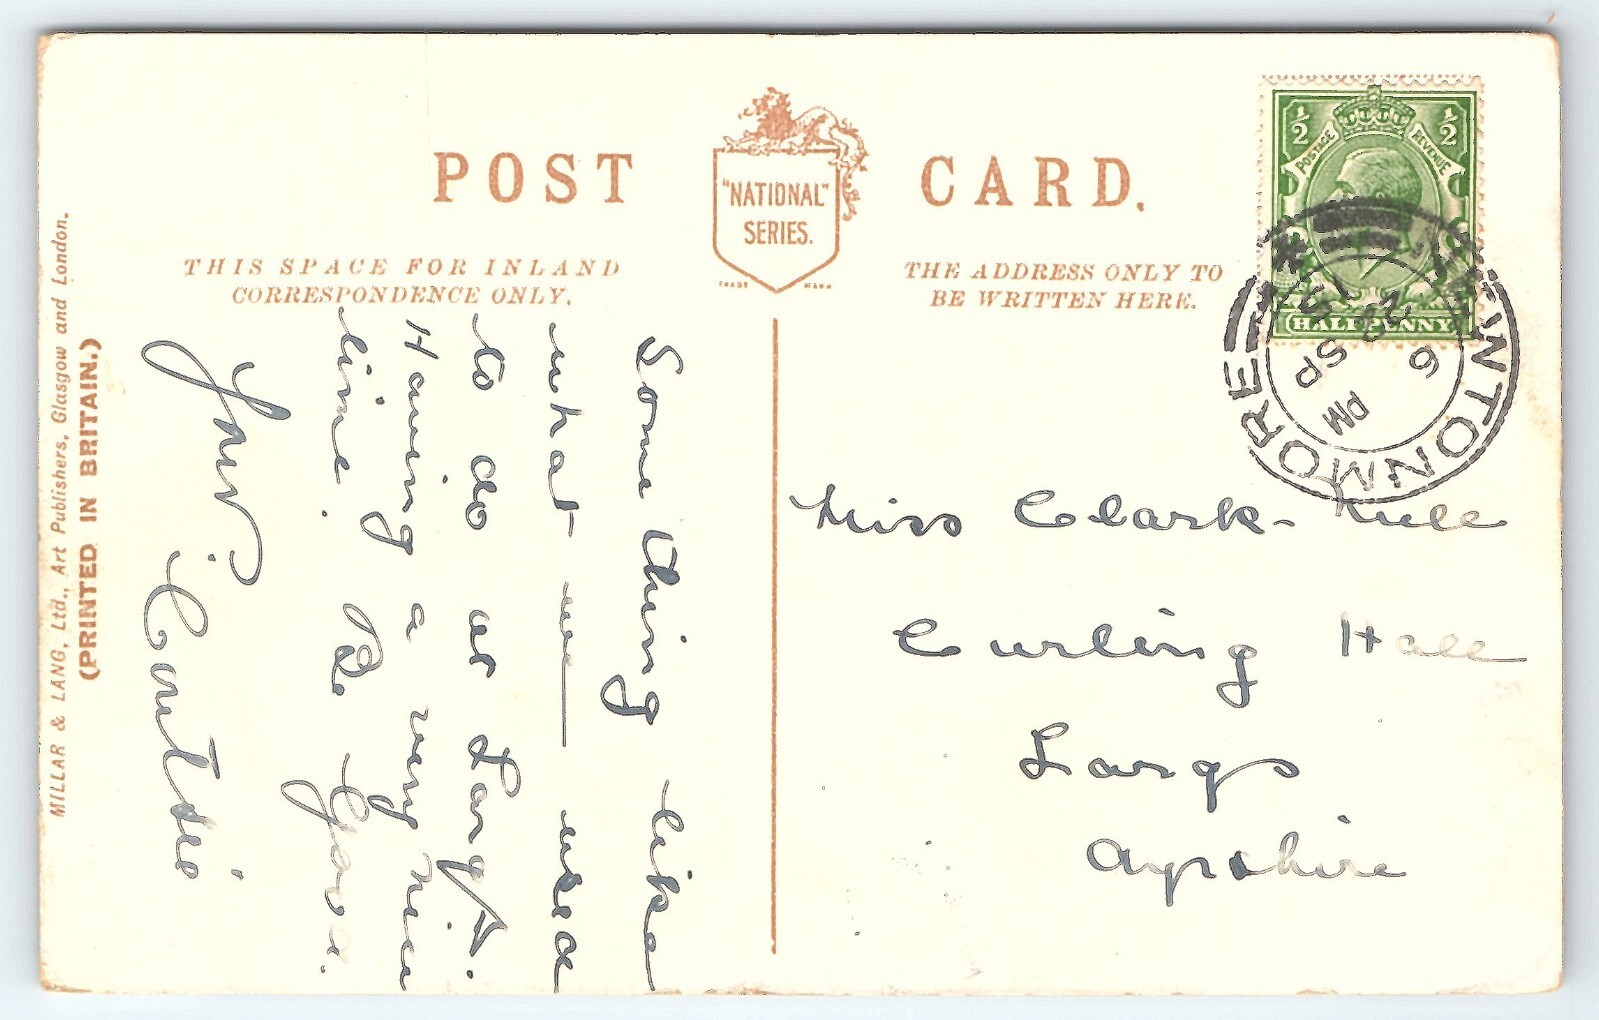 POST CARD.
"NATIONAL"
SERIES.
TRADE MARK
THIS SPACE FOR INLAND
CORRESPONDENCE ONLY.
THE ADDRESS ONLY TO
BE WRITTEN HERE.
½ ½
POSTAGE REVENUE
HALFPENNY
NEWTONMORE
6 PM
SP
Some thing like
what we used
to do at Largs.
Having a very nice
time.
Miss Clark-
Curling Hall
Largs
Ayrshire
MILLAR & LANG, Ltd., Art Publishers, Glasgow and London.
(PRINTED IN BRITAIN.)